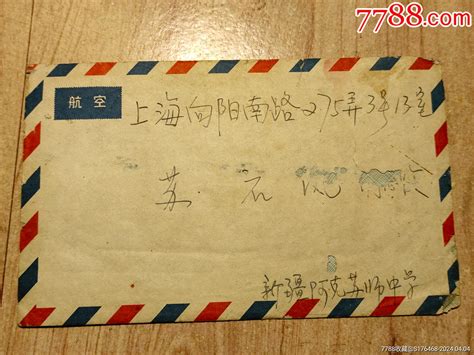 7788.com
航空
上海向阳南路275弄3号13室
苏 石
新疆阿克苏师中学
7788收藏@S176468-2024.04.04